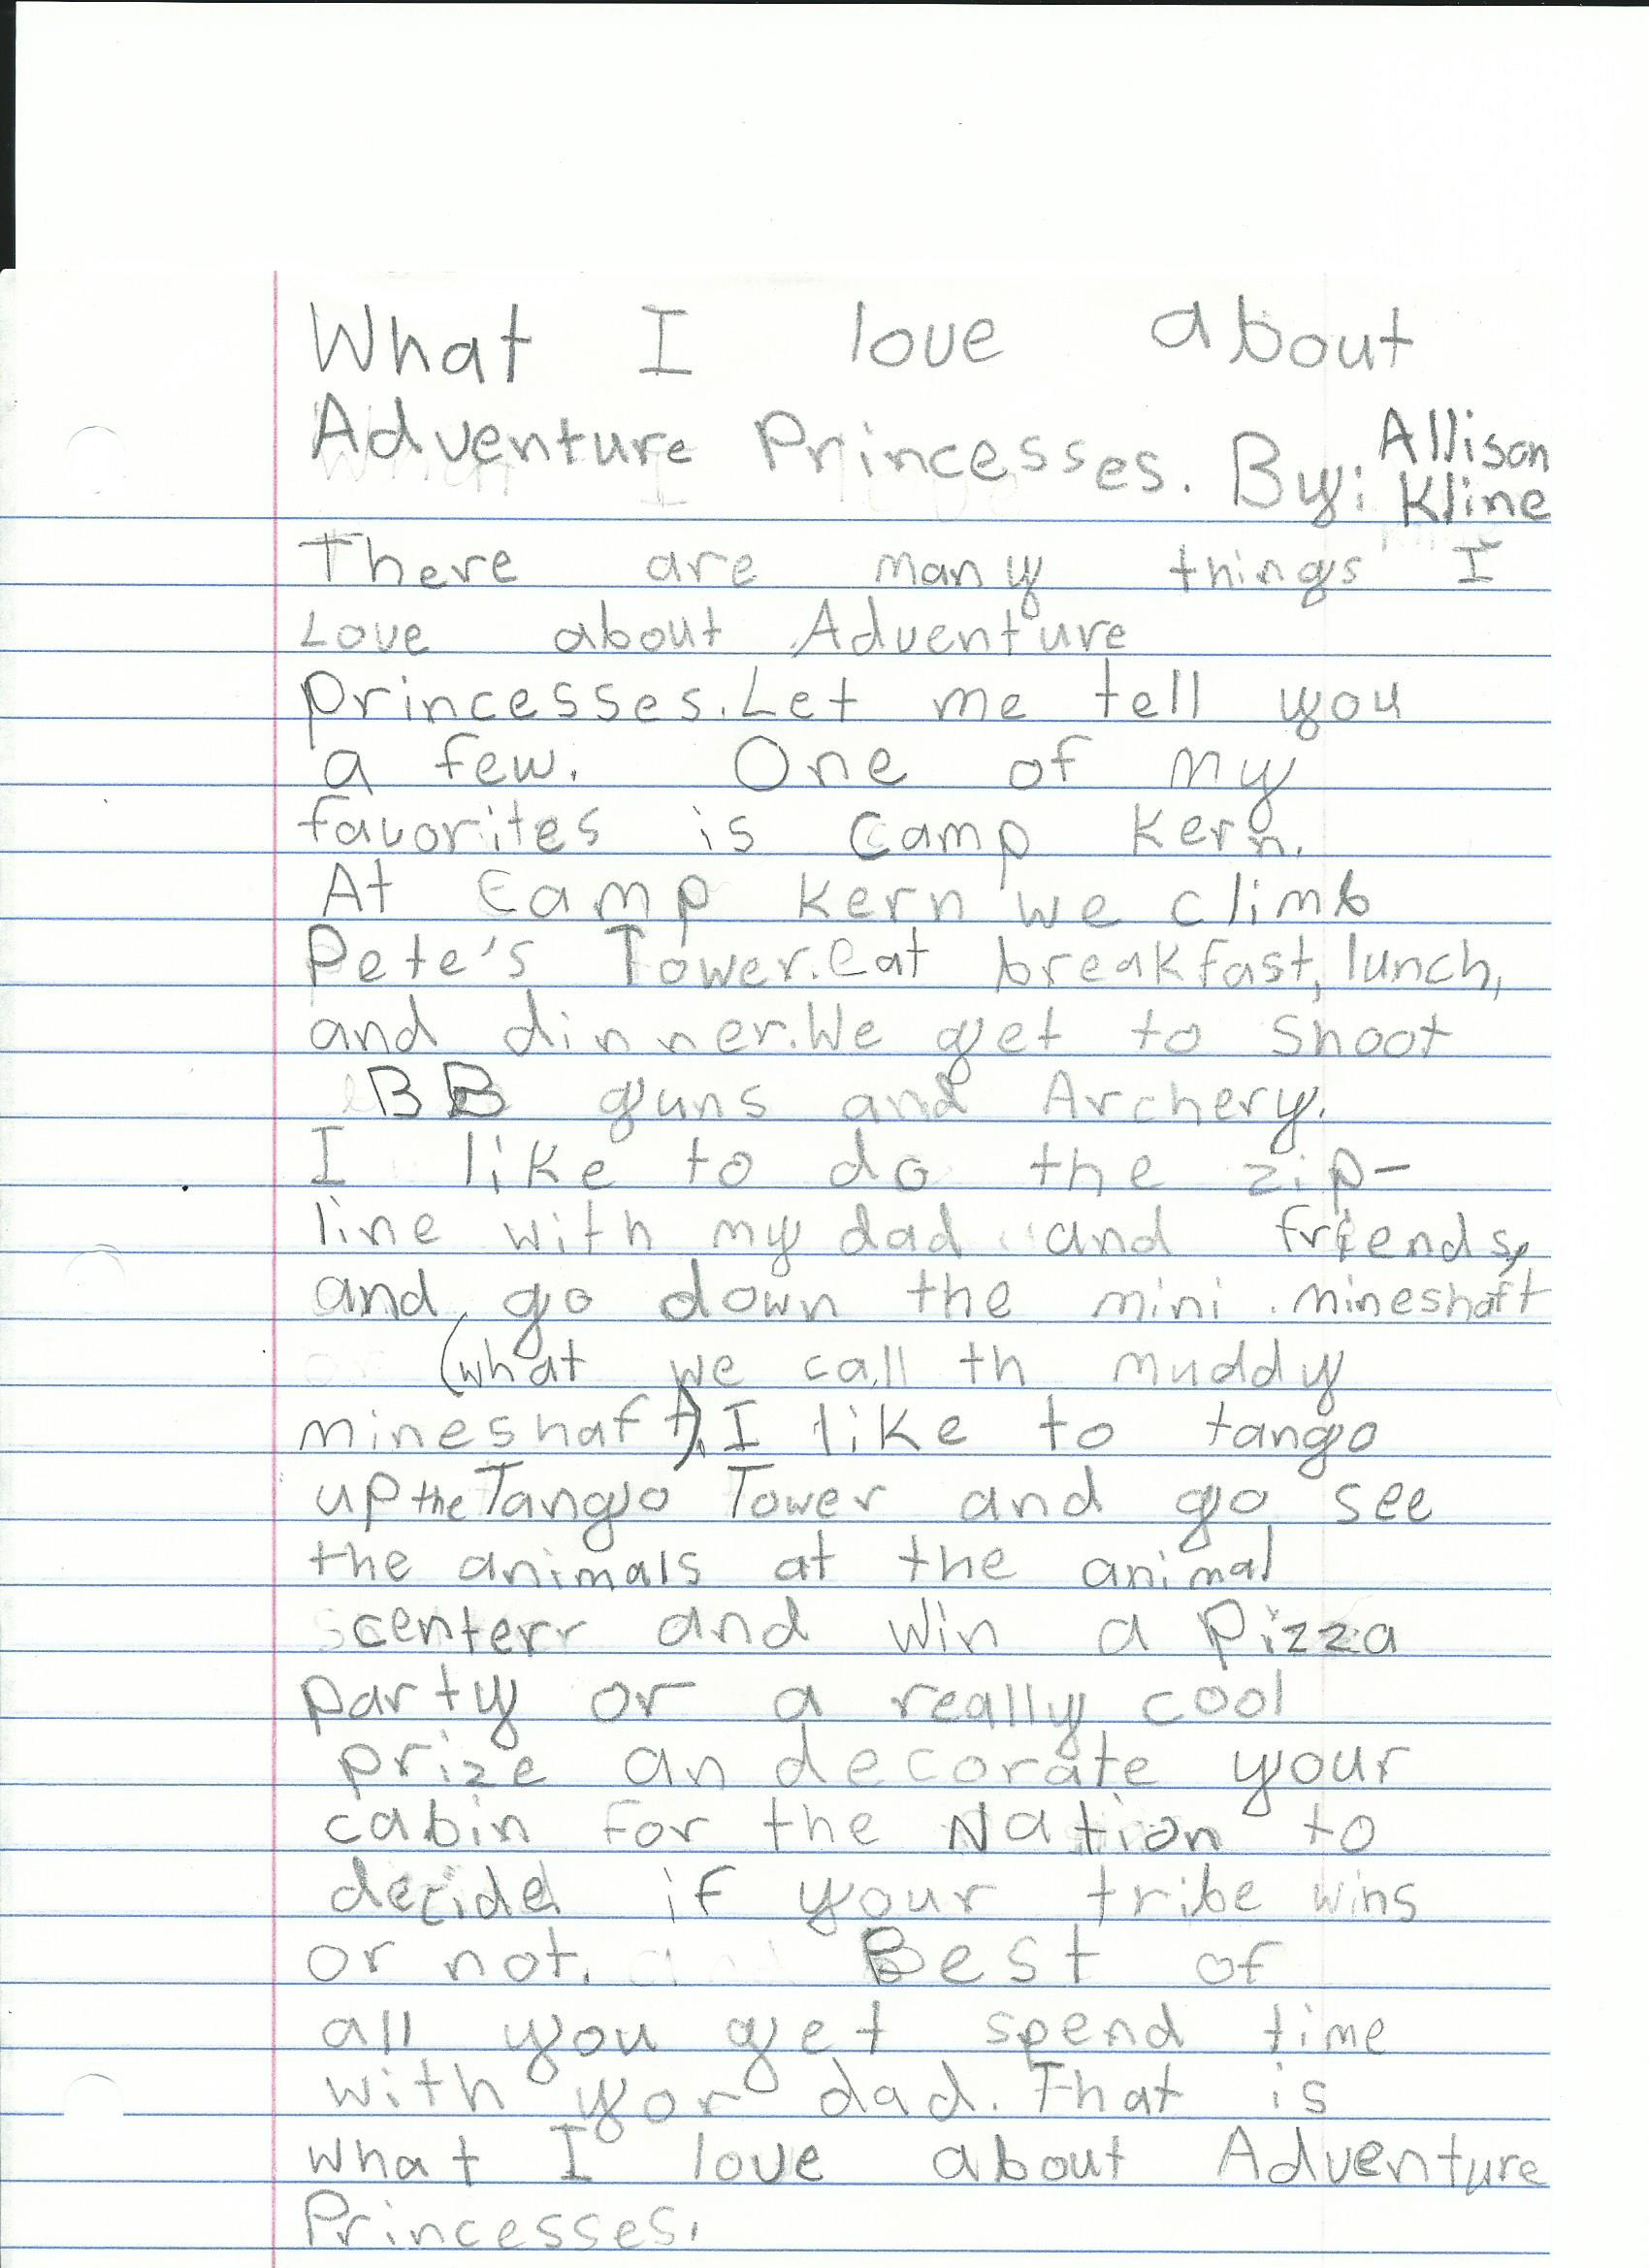 What I love about
Adventure Princesses. By: Allison
Kline
There are many things I
Love about Adventure
princesses. Let me tell you
a few. One of my
favorites is Camp Kern.
At Camp Kern we climb
Pete's Tower. Eat breakfast, lunch,
and dinner. We get to shoot
BB guns and Archery.
I like to do the zip-
line with my dad and friends,
and go down the mini mineshaft
(what we call th muddy
mineshaft). I like to tango
up the Tango Tower and go see
the animals at the animal
center and win a pizza
party or a really cool
prize an decorate your
cabin for the Nation to
decide if your tribe wins
or not. Best of
all you get spend time
with yor dad. That is
what I love about Adventure
Princesses.